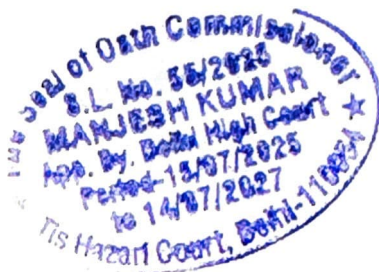 The Seal of Oath Commissioner
S.L. No. 55/2025
MANJESH KUMAR
App. By. Delhi High Court
Period-15/07/2025
to 14/07/2027
Tis Hazari Court, Delhi-110054